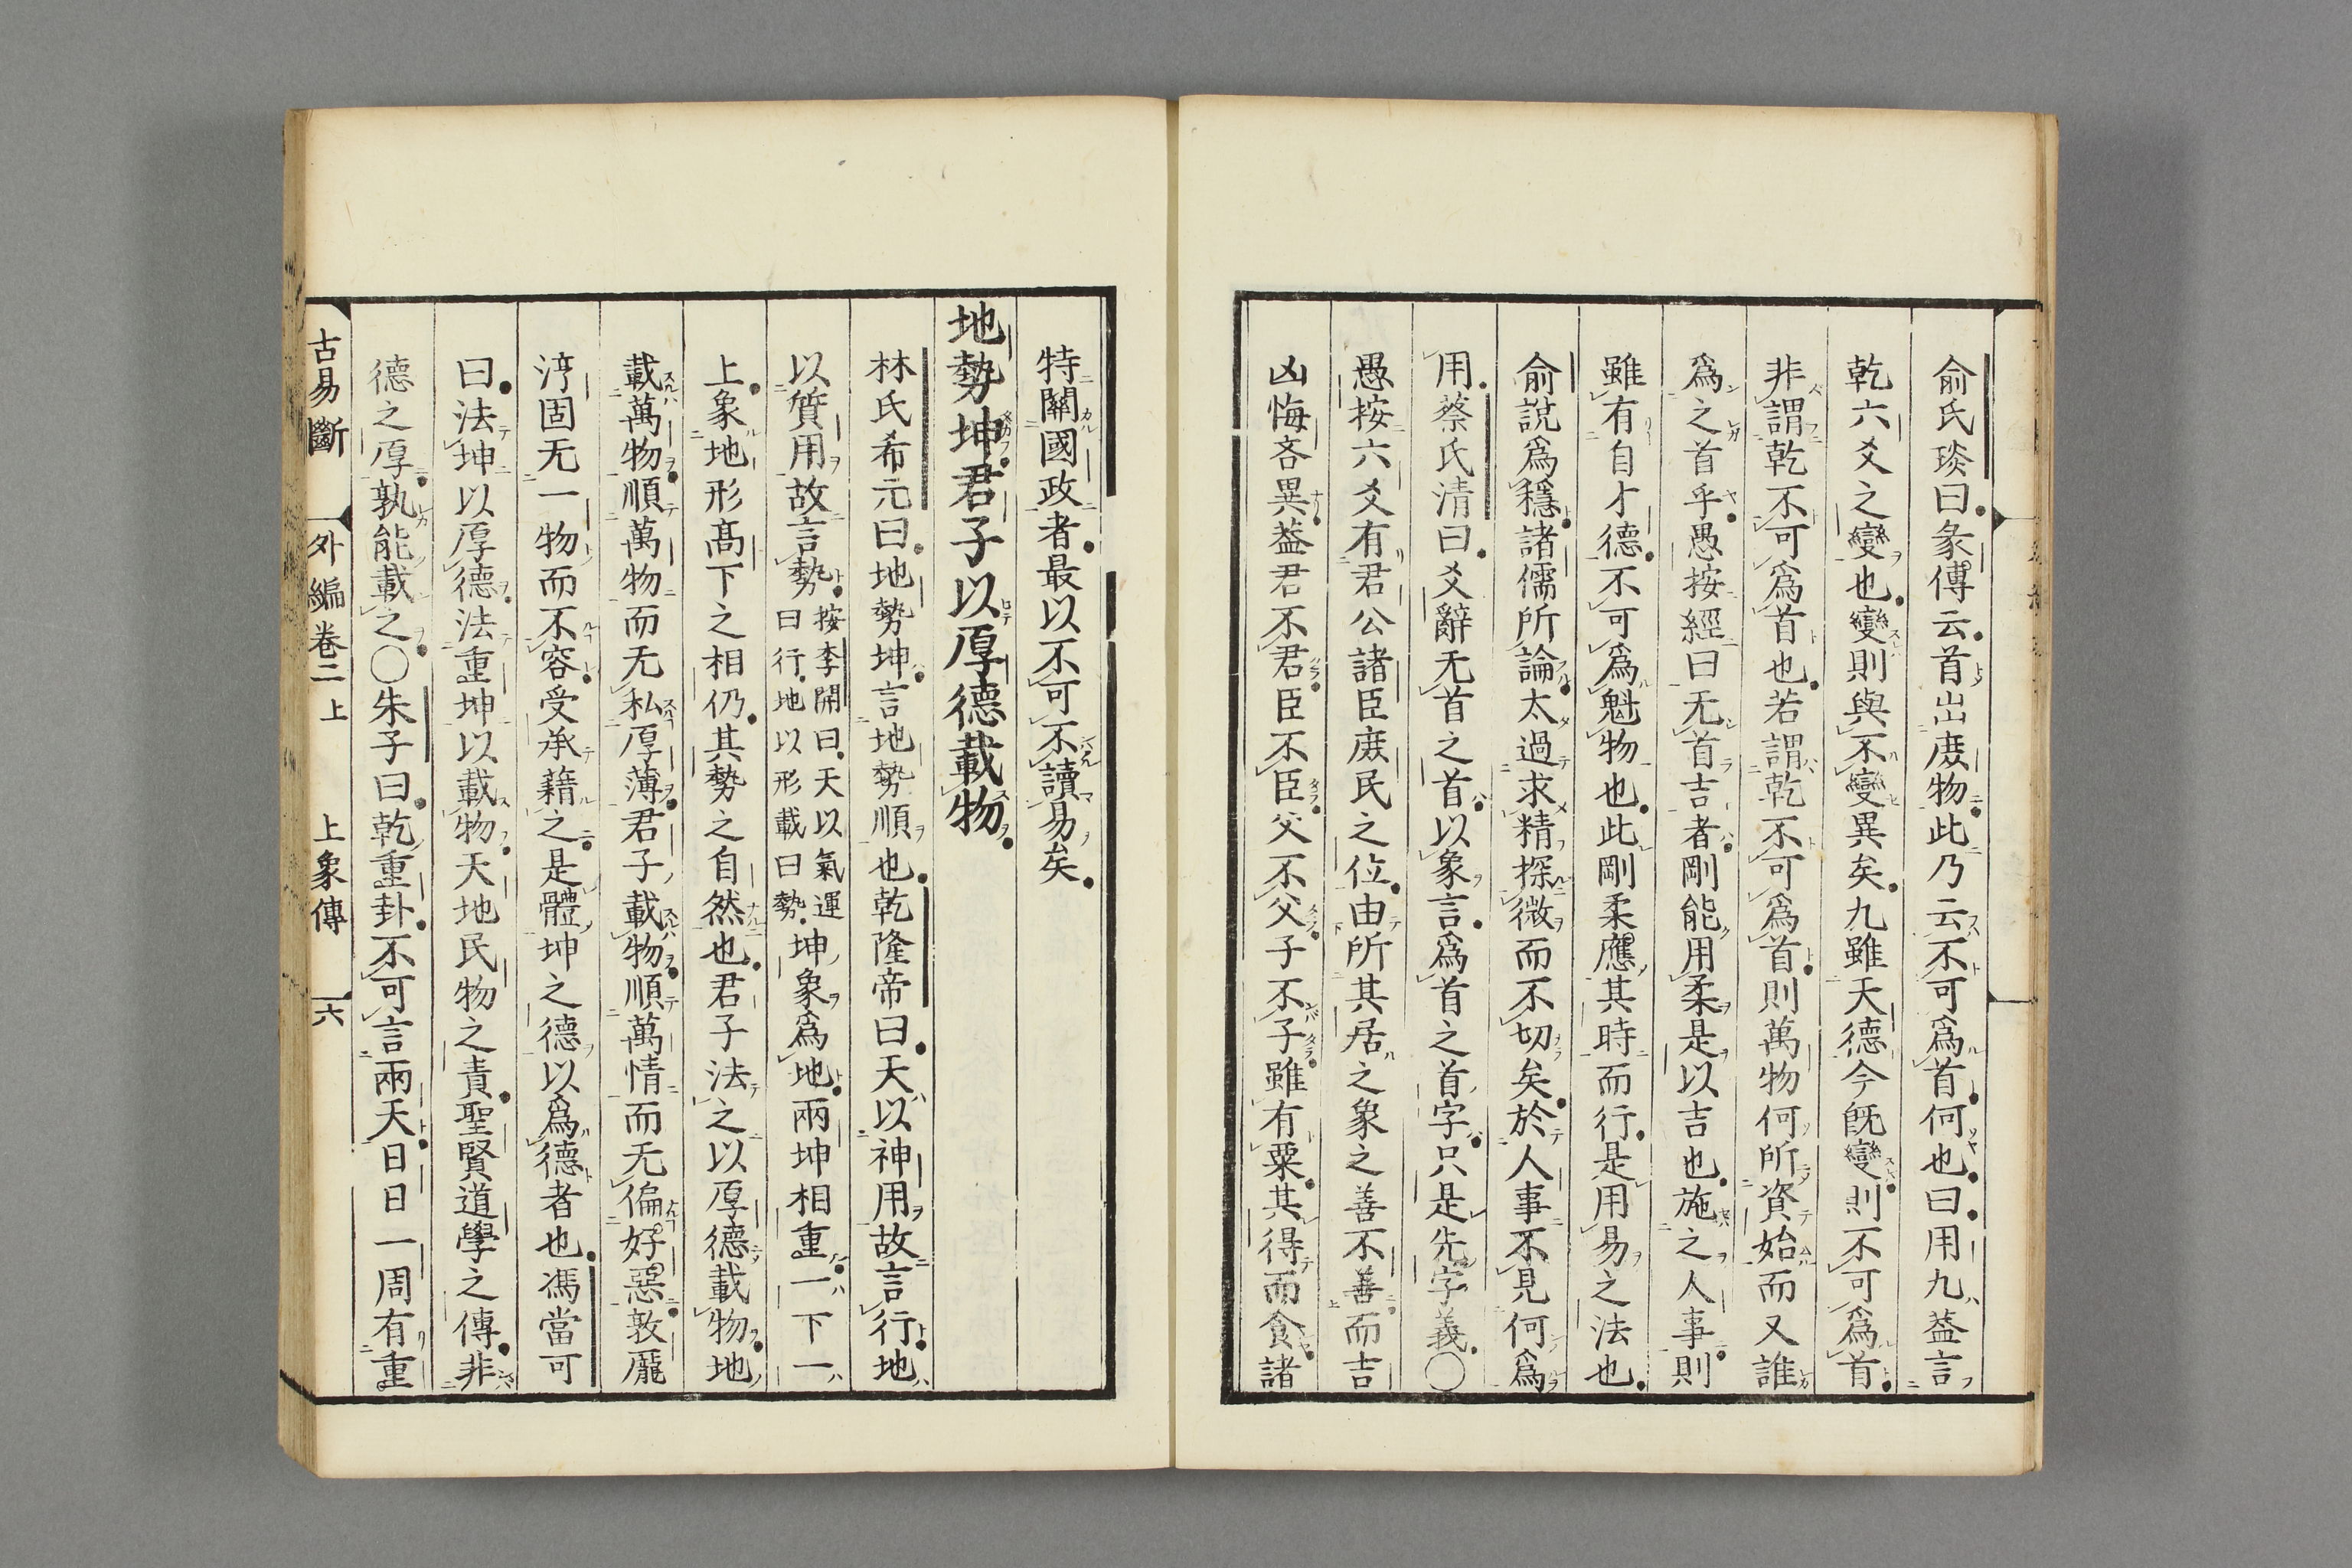 俞氏琰曰彖傳云首出庻物此乃云不可爲首何也曰用九葢言
乾六爻之變也變則與不變異矣九雖天德今旣變則不可爲首
非謂乾不可爲首也若謂乾不可爲首則萬物何所資始而又誰
爲之首乎愚按經曰无首吉者剛能用柔是以吉也施之人事則
雖有自才德不可爲魁物也此剛柔應其時而行是用易之法也
俞說爲穩諸儒所論太過求精探微而不切矣於人事不見何爲
用蔡氏清曰爻辭无首之首以象言爲首之首字只是先字義〇
愚按六爻有君公諸臣庻民之位由所其居之象之善不善而吉
凶悔吝異葢君不君臣不臣父不父子不子雖有粟其得而食諸
特關國政者最以不可不讀易矣
地勢坤君子以厚德載物
林氏希元曰地勢坤言地勢順也乾隆帝曰天以神用故言行地
以質用故言勢按李開曰天以氣運曰行地以形載曰勢坤象爲地兩坤相重一下一
上象地形髙下之相仍其勢之自然也君子法之以厚德載物地
載萬物順萬物而无私厚薄君子載物順萬情而无偏好惡敦龐
渟固无一物而不容受承籍之是體坤之德以爲德者也馮當可
曰法坤以厚德法重坤以載物天地民物之責聖賢道學之傳非
德之厚孰能載之〇朱子曰乾重卦不可言兩天日日一周有重
古易斷　外編卷二上　上象傳　六